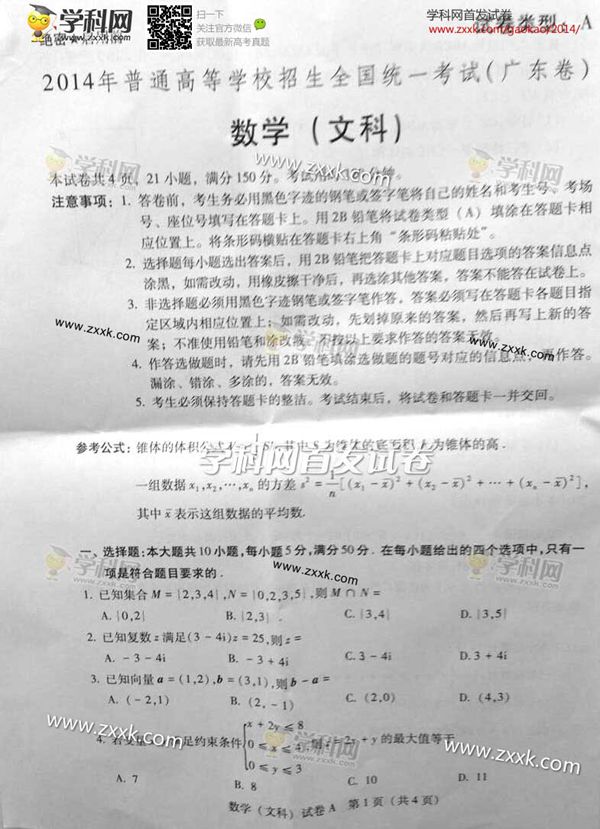 学科网
www.zxxk.com
扫一扫
关注官方微信
获取最新高考真题
学科网首发试卷
www.zxxk.com/gaokao/2014/
绝密
试卷类型：A
2014年普通高等学校招生全国统一考试（广东卷）
数学（文科）
学科网
www.zxxk.com
学科网
本试卷共4页，21小题，满分150分。考试
注意事项：1. 答卷前，考生务必用黑色字迹的钢笔或签字笔将自己的姓名和考生号、考场
号、座位号填写在答题卡上。用2B铅笔将试卷类型（A）填涂在答题卡相
应位置上。将条形码横贴在答题卡右上角“条形码粘贴处”。
2. 选择题每小题选出答案后，用2B铅笔把答题卡上对应题目选项的答案信息点
涂黑，如需改动，用橡皮擦干净后，再选涂其他答案，答案不能答在试卷上。
3. 非选择题必须用黑色字迹钢笔或签字笔作答，答案必须写在答题卡各题目指
定区域内相应位置上；如需改动，先划掉原来的答案，然后再写上新的答
案；不准使用铅笔和涂改液。不按以上要求作答的答案无效。
www.zxxk.com
学科网
www.zxxk.com
4. 作答选做题时，请先用2B铅笔填涂选做题的题号对应的信息点，再作答。
漏涂、错涂、多涂的，答案无效。
5. 考生必须保持答题卡的整洁。考试结束后，将试卷和答题卡一并交回。
参考公式：锥体的体积公式 其中S为锥体的底面积，h为锥体的高．
学科网首发试卷
一组数据x₁,x₂,⋯,xₙ的方差s²=1/n[(x₁−x̄)²+(x₂−x̄)²+⋯+(xₙ−x̄)²],
其中x̄表示这组数据的平均数.
一、选择题：本大题共10小题，每小题5分，满分50分．在每小题给出的四个选项中，只有一
项是符合题目要求的．
学科网
www.zxxk.com
学科网
1. 已知集合M={2,3,4},N={0,2,3,5},则M∩N=
A. {0,2} B. {2,3} C. {3,4} D. {3,5}
2. 已知复数z满足(3−4i)z=25,则z=
A. −3−4i B. −3+4i C. 3−4i D. 3+4i
3. 已知向量a=(1,2),b=(3,1),则b−a=
A. (−2,1) B. (2,−1) C. (2,0) D. (4,3)
www.zxxk.com
学科网
www.zxxk.com
4. 若变量 足约束条件{x+2y≤8 0≤x≤4 0≤y≤3 ,则z=2x+y的最大值等于
A. 7 B. 8 C. 10 D. 11
数学（文科）试卷A 第1页（共4页）